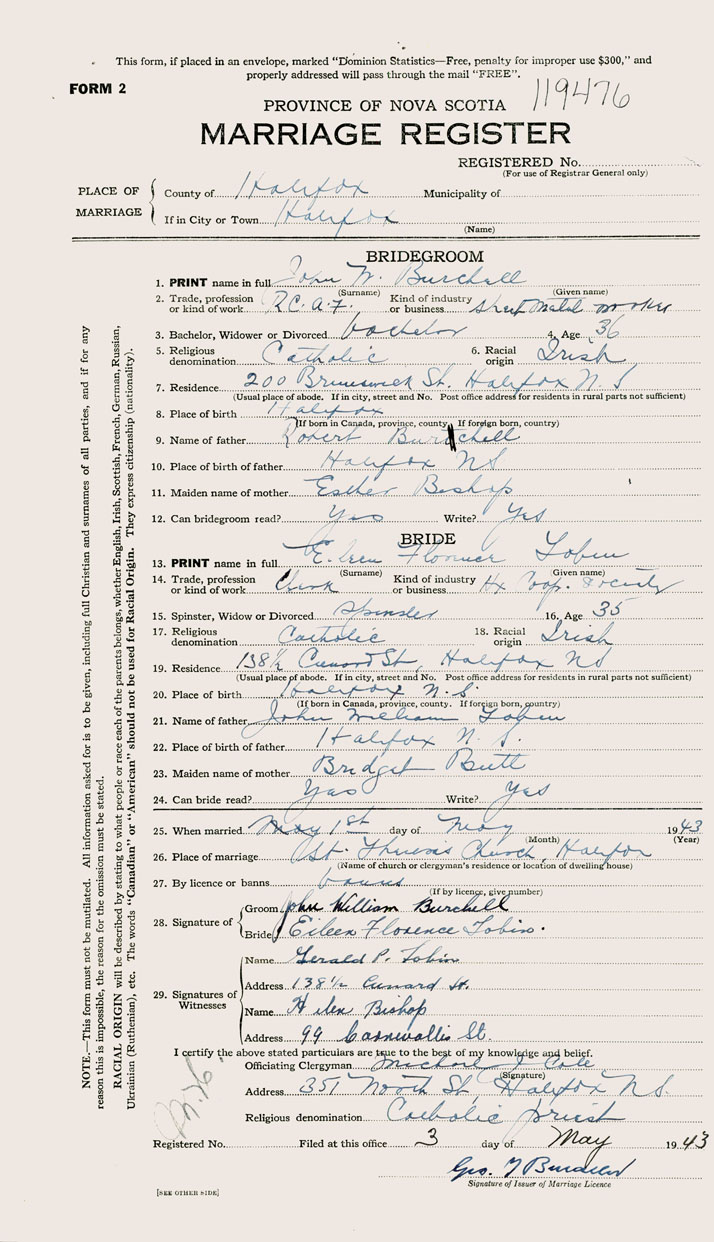 This form, if placed in an envelope, marked “Dominion Statistics—Free, penalty for improper use $300,” and
properly addressed will pass through the mail “FREE”.
FORM 2
119476
PROVINCE OF NOVA SCOTIA
MARRIAGE REGISTER
REGISTERED No.
(For use of Registrar General only)
PLACE OF MARRIAGE
County of Halifax Municipality of
If in City or Town Halifax
(Name)
BRIDEGROOM
1. PRINT name in full John W. Burchell
(Surname) (Given name)
2. Trade, profession or kind of work R.C.A.F. Kind of industry or business Sheet Metal worker
3. Bachelor, Widower or Divorced bachelor 4. Age 36
5. Religious denomination Catholic 6. Racial origin Irish
7. Residence 200 Brunswick St. Halifax N.S
(Usual place of abode. If in city, street and No. Post office address for residents in rural parts not sufficient)
8. Place of birth Halifax
(If born in Canada, province, county. If foreign born, country)
9. Name of father Robert Burchell
10. Place of birth of father Halifax NS
11. Maiden name of mother Esther Bishop
12. Can bridegroom read? Yes Write? Yes
BRIDE
13. PRINT name in full Eileen Florence Tobin
(Surname) (Given name)
14. Trade, profession or kind of work Clerk Kind of industry or business Hx Coop. Society
15. Spinster, Widow or Divorced Spinster 16. Age 35
17. Religious denomination Catholic 18. Racial origin Irish
19. Residence 138½ Cunard St, Halifax NS
(Usual place of abode. If in city, street and No. Post office address for residents in rural parts not sufficient)
20. Place of birth Halifax N.S.
(If born in Canada, province, county. If foreign born, country)
21. Name of father John William Tobin
22. Place of birth of father Halifax N.S.
23. Maiden name of mother Bridget Butt
24. Can bride read? Yes Write? Yes
25. When married May 1st day of May 1943
(Month) (Year)
26. Place of marriage St. Theresa's Church, Halifax
(Name of church or clergyman's residence or location of dwelling house)
27. By licence or banns banns
(If by licence, give number)
28. Signature of
Groom John William Burchell
Bride Eileen Florence Tobin.
29. Signatures of Witnesses
Name Gerald P. Tobin
Address 138½ Cunard St.
Name Helen Bishop
Address 99 Cornwallis St.
I certify the above stated particulars are true to the best of my knowledge and belief.
Officiating Clergyman Michael J. Cole
(Signature)
Address 351 North St, Halifax N.S.
Religious denomination Catholic priest
Registered No. Filed at this office 3 day of May 1943
Geo.
Signature of Issuer of Marriage Licence
[SEE OTHER SIDE]
NOTE.—This form must not be mutilated. All information asked for is to be given, including full Christian and surnames of all parties, and if for any
reason this is impossible, the reason for the omission must be stated.
RACIAL ORIGIN will be described by stating to what people or race each of the parents belongs, whether English, Irish, Scottish, French, German, Russian,
Ukrainian (Ruthenian), etc. The words “Canadian” or “American” should not be used for Racial Origin. They express citizenship (nationality).